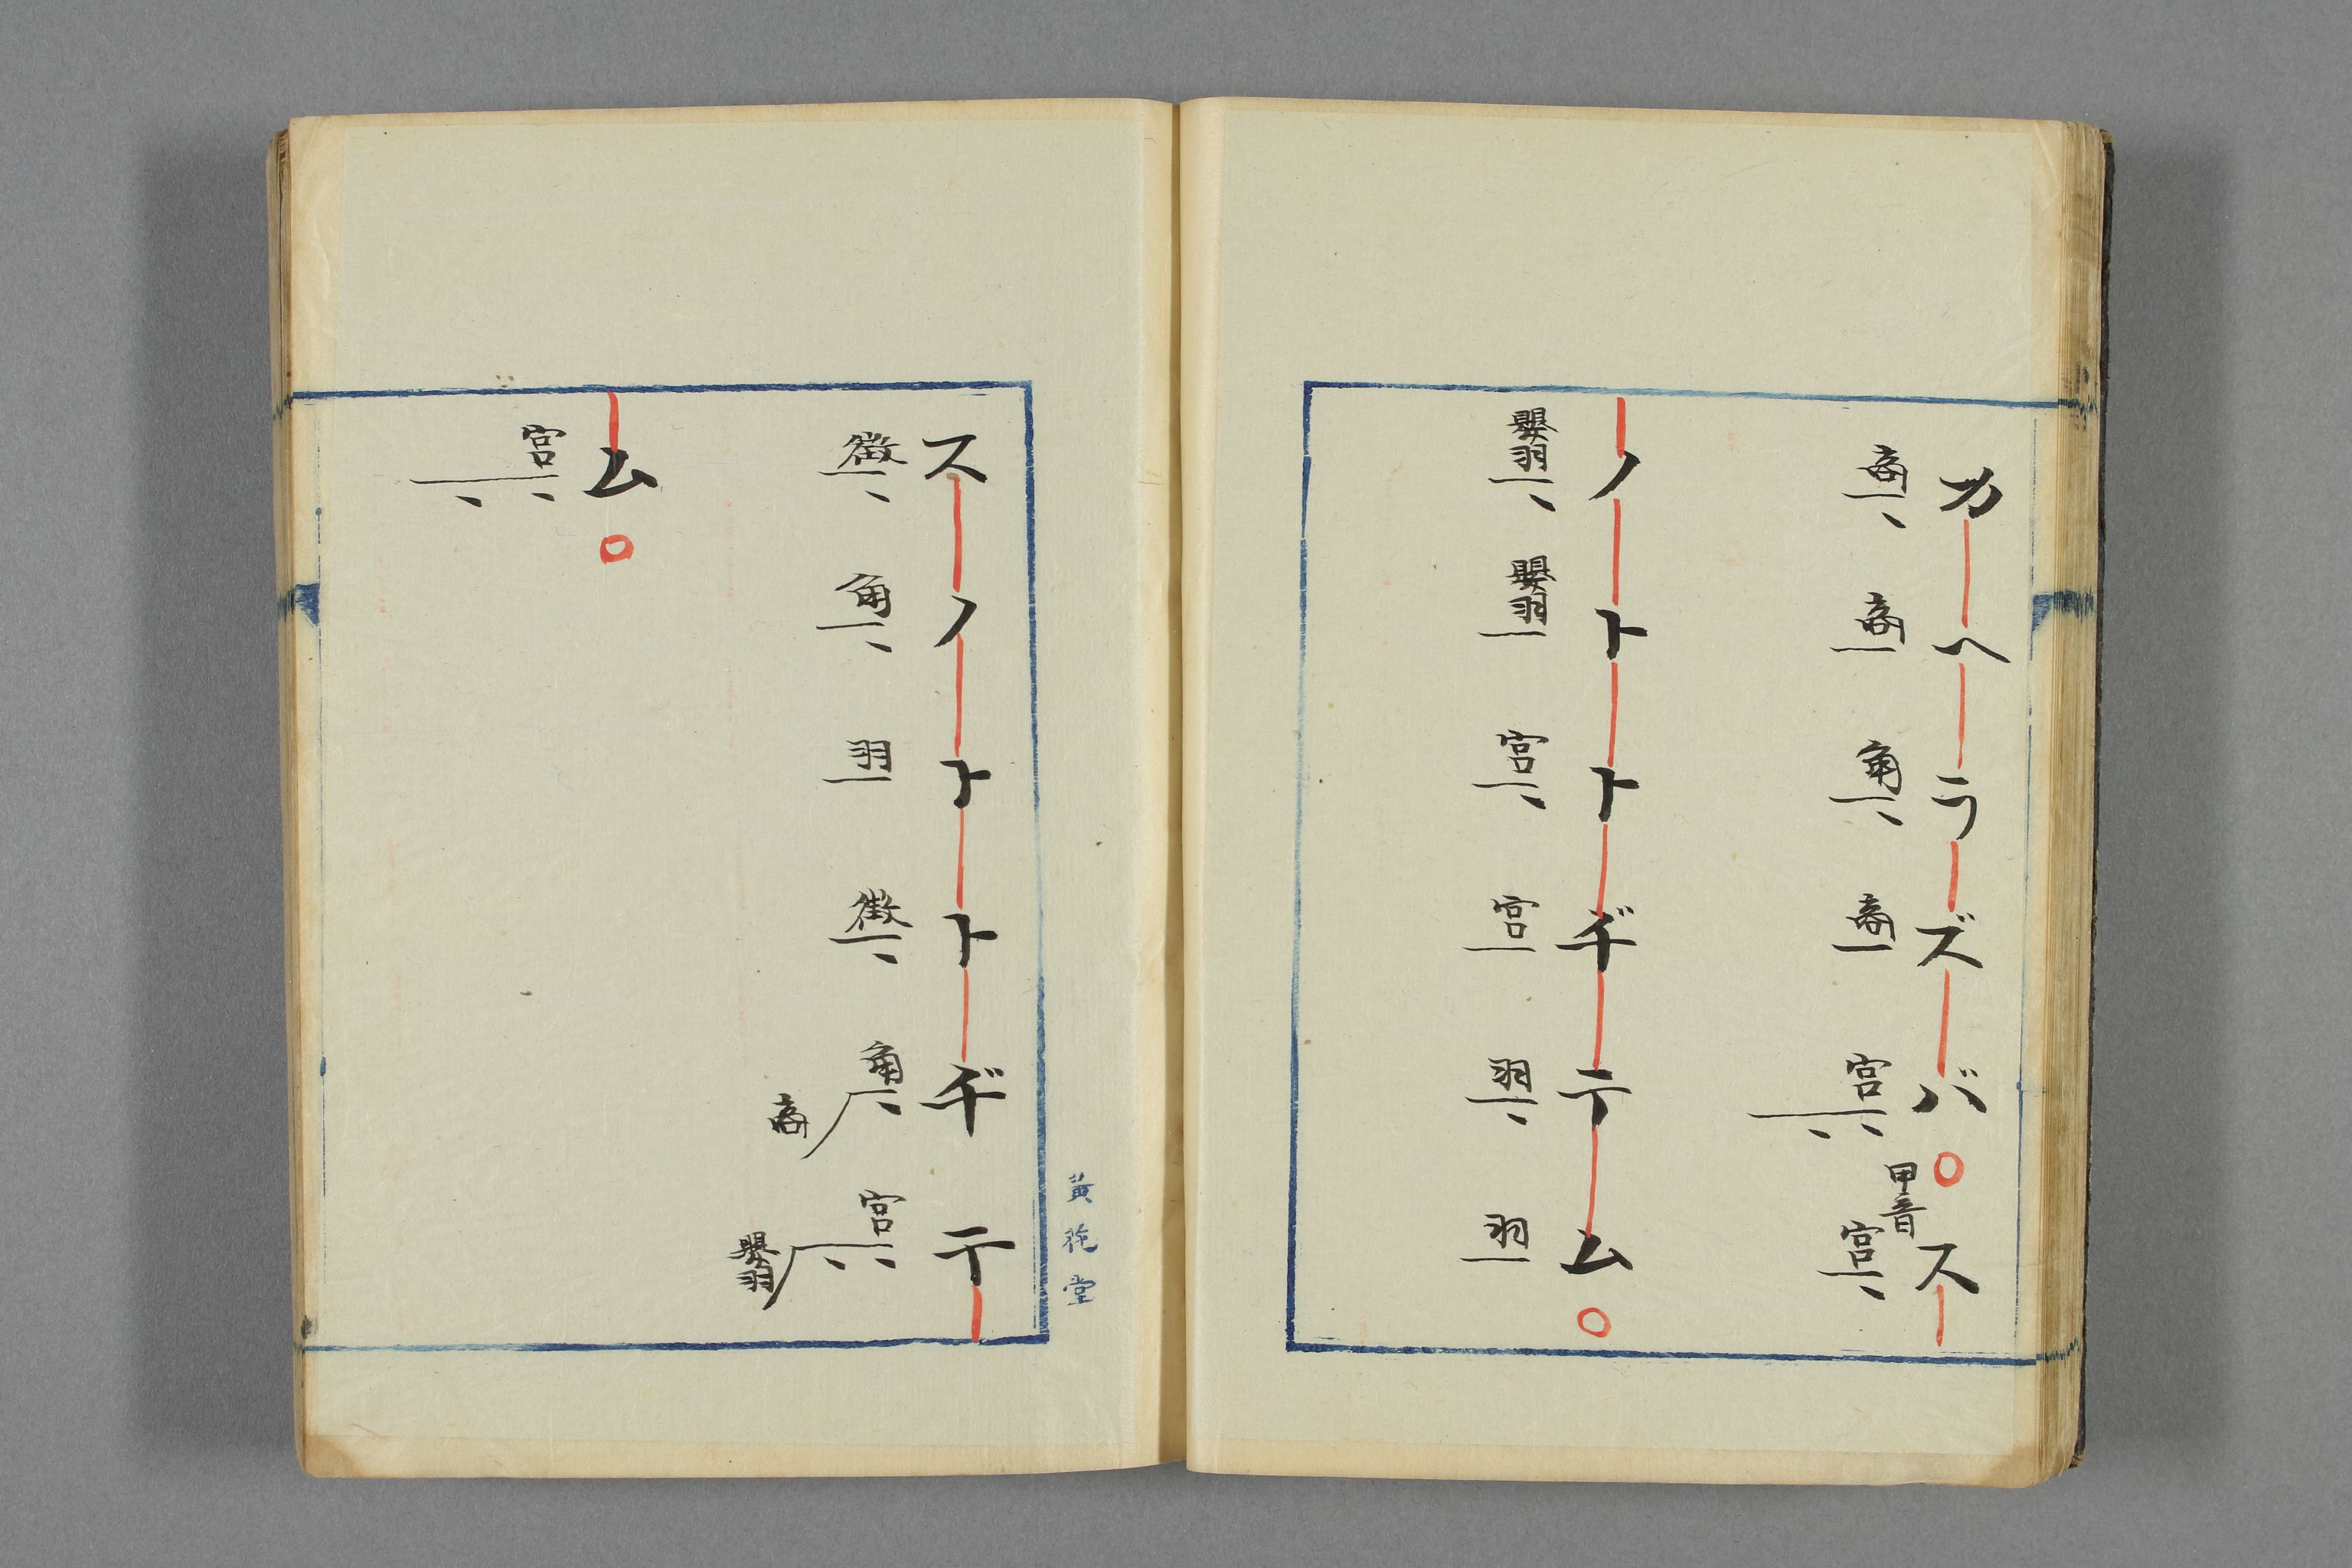 カヘラズバ○ス
商商角商宮甲音宮
ノトトヂテム○
嬰羽嬰羽宮宮羽羽
黄花堂
スノトトヂテ
徴角羽徴角商宮嬰羽
ム○
宮